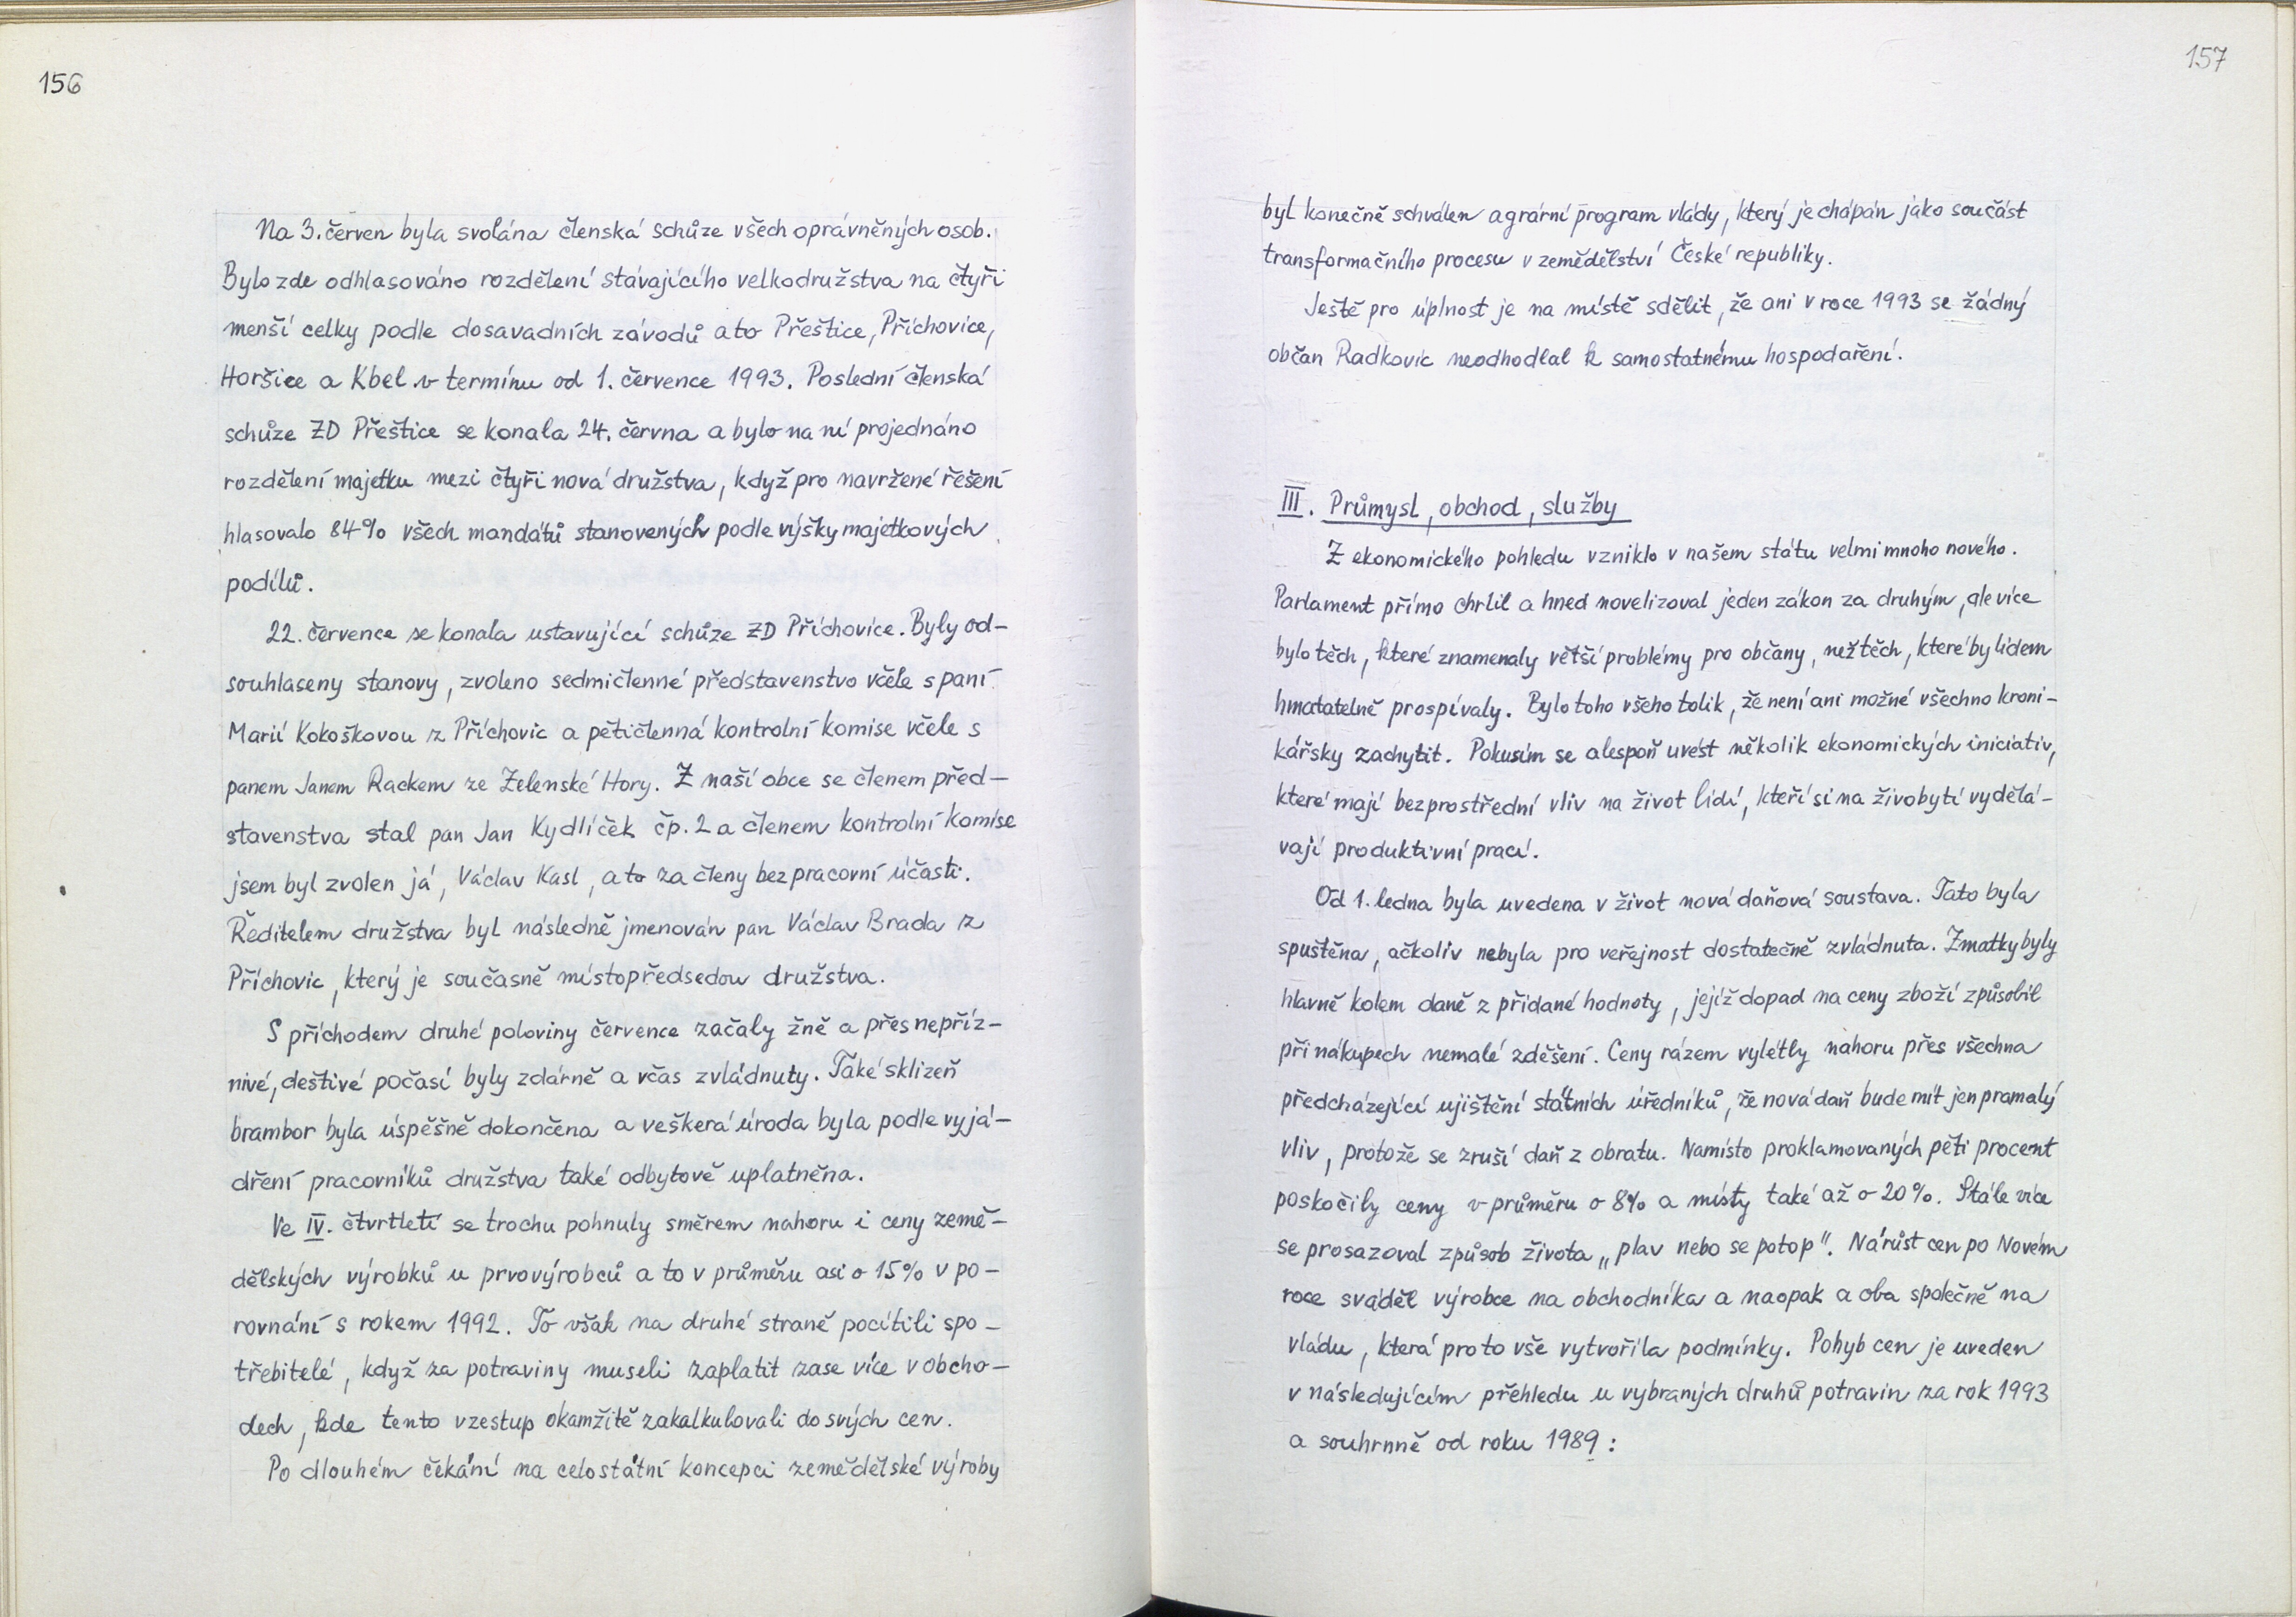 156
Na 3. červen byla svolána členská schůze všech oprávněných osob.
Bylo zde odhlasováno rozdělení stávajícího velkodružstva na čtyři
menší celky podle dosavadních závodů a to Přeštice, Příchovice,
Horšice a Kbel v termínu od 1. července 1993. Poslední členská
schůze ZD Přeštice se konala 24. června a bylo na ní projednáno
rozdělení majetku mezi čtyři nová družstva, když pro navržené řešení
hlasovalo 84% všech mandátů stanovených podle výšky majetkových
podílů.
22. července se konala ustavující schůze ZD Příchovice. Byly od-
souhlaseny stanovy, zvoleno sedmičlenné představenstvo včele s paní
Marií Kokoškovou z Příchovic a pětičlenná kontrolní komise včele s
panem Janem Rackem ze Zelenské Hory. Z naší obce se členem před-
stavenstva stal pan Jan Kydlíček čp. 2 a členem kontrolní komise
jsem byl zvolen já, Václav Kasl, a to za členy bez pracovní účasti.
Ředitelem družstva byl následně jmenován pan Václav Brada z
Příchovic, který je současně místopředsedou družstva.
S příchodem druhé poloviny července začaly žně a přes nepříz-
nivé, deštivé počasí byly zdárně a včas zvládnuty. Také sklizeň
brambor byla úspěšně dokončena a veškerá úroda byla podle vyjá-
dření pracovníků družstva také odbytově uplatněna.
Ve IV. čtvrtletí se trochu pohnuly směrem nahoru i ceny země-
dělských výrobků u prvovýrobců a to v průměru asi o 15% v po-
rovnání s rokem 1992. To však na druhé straně pocítili spo-
třebitelé, když za potraviny museli zaplatit zase více v obcho-
dech, kde tento vzestup okamžitě zakalkulovali do svých cen.
Po dlouhém čekání na celostátní koncepci zemědělské výroby
157
byl konečně schválen agrární program vlády, který je chápán jako součást
transformačního procesu v zemědělství České republiky.
Ještě pro úplnost je na místě sdělit, že ani v roce 1993 se žádný
občan Radkovic neodhodlal k samostatnému hospodaření.
III. Průmysl, obchod, služby
Z ekonomického pohledu vzniklo v našem státu velmi mnoho nového.
Parlament přímo chrlil a hned novelizoval jeden zákon za druhým, ale více
bylo těch, které znamenaly větší problémy pro občany, než těch, které by lidem
hmatatelně prospívaly. Bylo toho všeho tolik, že není ani možné všechno kroni-
kářsky zachytit. Pokusím se alespoň uvést několik ekonomických iniciativ,
které mají bezprostřední vliv na život lidí, kteří si na živobytí vydělá-
vají produktivní prací.
Od 1. ledna byla uvedena v život nová daňová soustava. Tato byla
spuštěna, ačkoliv nebyla pro veřejnost dostatečně zvládnuta. Zmatky byly
hlavně kolem daně z přidané hodnoty, jejíž dopad na ceny zboží způsobil
při nákupech nemalé zděšení. Ceny rázem vylétly nahoru přes všechna
předcházející ujištění státních úředníků, že nová daň bude mít jen pramalý
vliv, protože se zruší daň z obratu. Namísto proklamovaných pěti procent
poskočily ceny v průměru o 8% a místy také až o 20%. Stále více
se prosazoval způsob života „plav nebo se potop". Nárůst cen po Novém
roce sváděl výrobce na obchodníka a naopak a oba společně na
vládu, která pro to vše vytvořila podmínky. Pohyb cen je uveden
v následujícím přehledu u vybraných druhů potravin za rok 1993
a souhrnně od roku 1989: